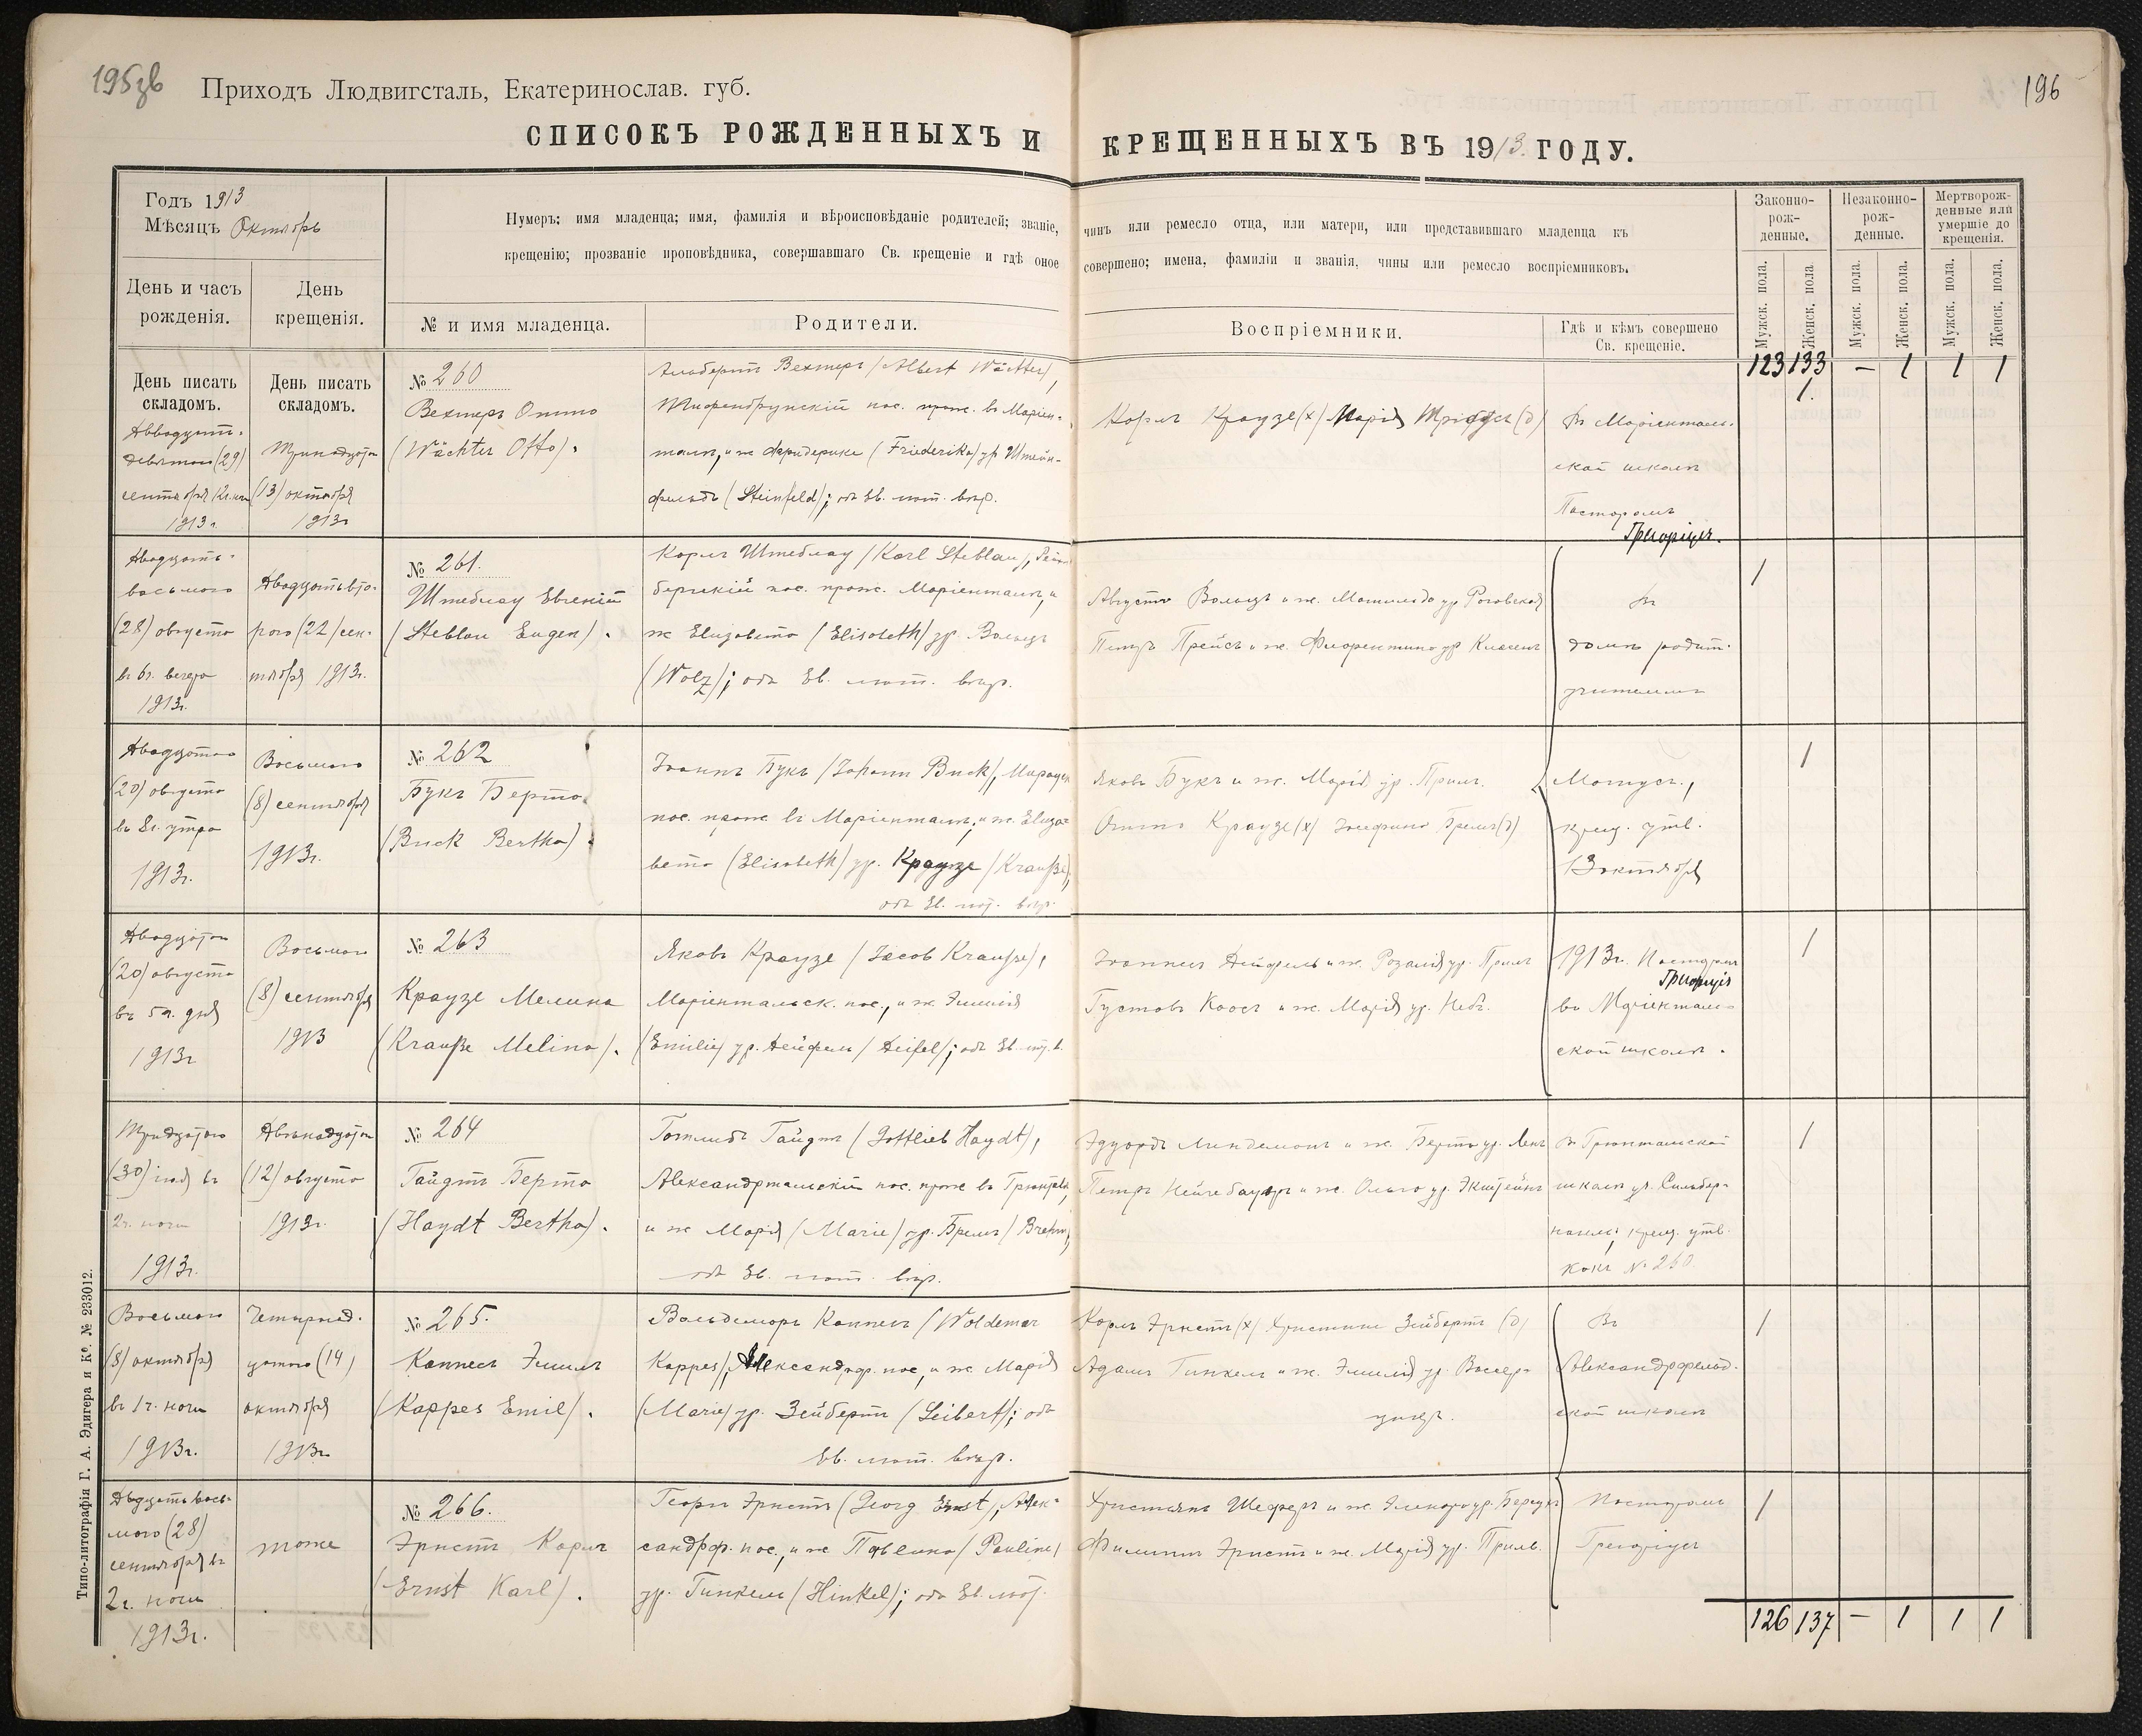 195
196
Приходъ Людвигсталь, Екатеринослав. губ.
СПИСОКЪ РОЖДЕННЫХЪ И КРЕЩЕННЫХЪ ВЪ 1913. ГОДУ.
Годъ 1913
Мѣсяцъ Октябрь
День и часъ рожденія.
День крещенія.
Нумеръ; имя младенца; имя, фамилія и вѣроисповѣданіе родителей; званіе, чинъ или ремесло отца, или матери, или представившаго младенца къ
крещенію; прозваніе проповѣдника, совершавшаго Св. крещеніе и гдѣ оное совершено; имена, фамиліи и званія, чины или ремесло воспріемниковъ.
№ и имя младенца.
Родители.
Воспріемники.
Гдѣ и кѣмъ совершено
Св. крещеніе.
Законно-
рож-
денные.
Незаконно-
рож-
денные.
Мертворож-
денные или
умершіе до
крещенія.
Мужск. пола.
Женск. пола
Мужск. пола.
Женск. пола.
Мужск. пола.
Женск. пола.
123 133 — 1 1 1
День писать
складомъ.
День писать
складомъ.
(29)
1913г.
(13) октября
1913г
№ 260
Вехтеръ Отто
(Wächter Otto).
Альбертъ Вехтеръ (Albert Wächter),
пос. прож. въ Маріен-
(Friederika) ур. Штейн-
фельдъ (Steinfeld); оба Ев. лют. вѣр.
Карлъ Краузе (х) Марія (д)
Въ Маріенталь-
ской школѣ
Пасторомъ
Грегоріусъ.
1.
Двадцать-
восьмого
(28) августа
въ 6ч. вечера
1913г.
Двадцатьвто-
рого (22) сен-
тября 1913г.
№ 261.
Штеблау Евгеній
(Steblau Eugen).
Карлъ Штеблау (Karl Steblau),
пос. прож. Маріенталѣ, и
ж. Елизавета (Elisabeth) ур. Вольцъ
(Wolz); оба Ев. лют. вѣр.
Августъ Вольцъ и ж. Матильда ур. Роговская
Петръ Прейсъ и ж. Флорентина ур. Классенъ
въ
домѣ родит.
учителемъ
1
Двадцатаго
(20) августа
въ 8ч. утра
1913г.
Восьмого
(8) сентября
1913г.
№ 262
Букъ Берта
(Buck Bertha).
Іоаннъ Букъ (Johann Buck),
пос. прож. въ Маріенталѣ, и ж. Елиза-
вета (Elisabeth) ур. Краузе (Krauße),
оба Ев. лют. вѣр.
Яковъ Букъ и ж. Марія ур. Приль.
Отто Краузе (х) Бремъ (д)
крещ. утв.
13 октября
1
Двадцатаго
(20) августа
въ 5ч. дня
1913г
Восьмого
(8) сентября
1913
№ 263
Краузе Мелина
(Krauße Melina).
Яковъ Краузе (Jacob Krauße),
Маріентальск. пос., и ж. Эмилія
(Emilie) ур. Дейфель (Deifel); оба Ев. лют. в.
Іоаннесъ Дейфель и ж. Розалія ур. Приль
Густавъ Коосъ и ж. Марія ур.
1913г. Пасторъ
Грегоріусъ
въ Маріенталь-
ской школѣ.
1
Тридцатого
(30) іюля въ
2ч. ночи
1913г.
Двѣнадцатаго
(12) августа
1913г.
№ 264
Гайдтъ Берта
(Haydt Bertha).
Готлибъ Гайдтъ (Gottlieb Haydt),
Александртальскій пос. прож. въ
и ж. Марія (Marie) ур. Бремъ (Brehm),
оба Ев. лют. вѣр.
Эдуардъ Линдеманъ и ж. Берта ур.
Петръ Нейгебауэръ и ж. Ольга ур. Экштейнъ
въ Грюнтальской
школѣ
крещ. утв.
какъ № 260.
1
Восьмого
(8) октября
въ 1ч. ночи
1913г.
Четырнад-
цатого (14)
октября
1913г
№ 265.
Каппесъ Эмиль
(Kappes Emil).
Вольдемаръ Каппесъ (Woldemar
Kappes), Александрф. пос., и ж. Марія
(Marie) ур. Зейбертъ (Seibert); оба
Ев. лют. вѣр.
Карлъ Эрнстъ (х) Христина Зейбертъ (д)
Адамъ Гинкель и ж. Эмилія ур.
Въ
Александрфельд-
ской школѣ
1
Двадцатьвось-
мого (28)
сентября въ
2ч. ночи
1913г.
тоже
№ 266.
Эрнстъ Карлъ
(Ernst Karl).
Георгъ Эрнстъ (Georg Ernst), Алек-
сандрф. пос., и ж. Павлина (Pauline)
ур. Гинкель (Hinkel); оба Ев. лют.
Христьянъ Шеферъ и ж. Элеонора ур.
Филиппъ Эрнстъ и ж. Марія ур. Приль.
Пасторомъ
Грегоріусъ
1
126 137 — 1 1 1
Типо-литографія Г. А. Эдигера и Кº. № 233012.